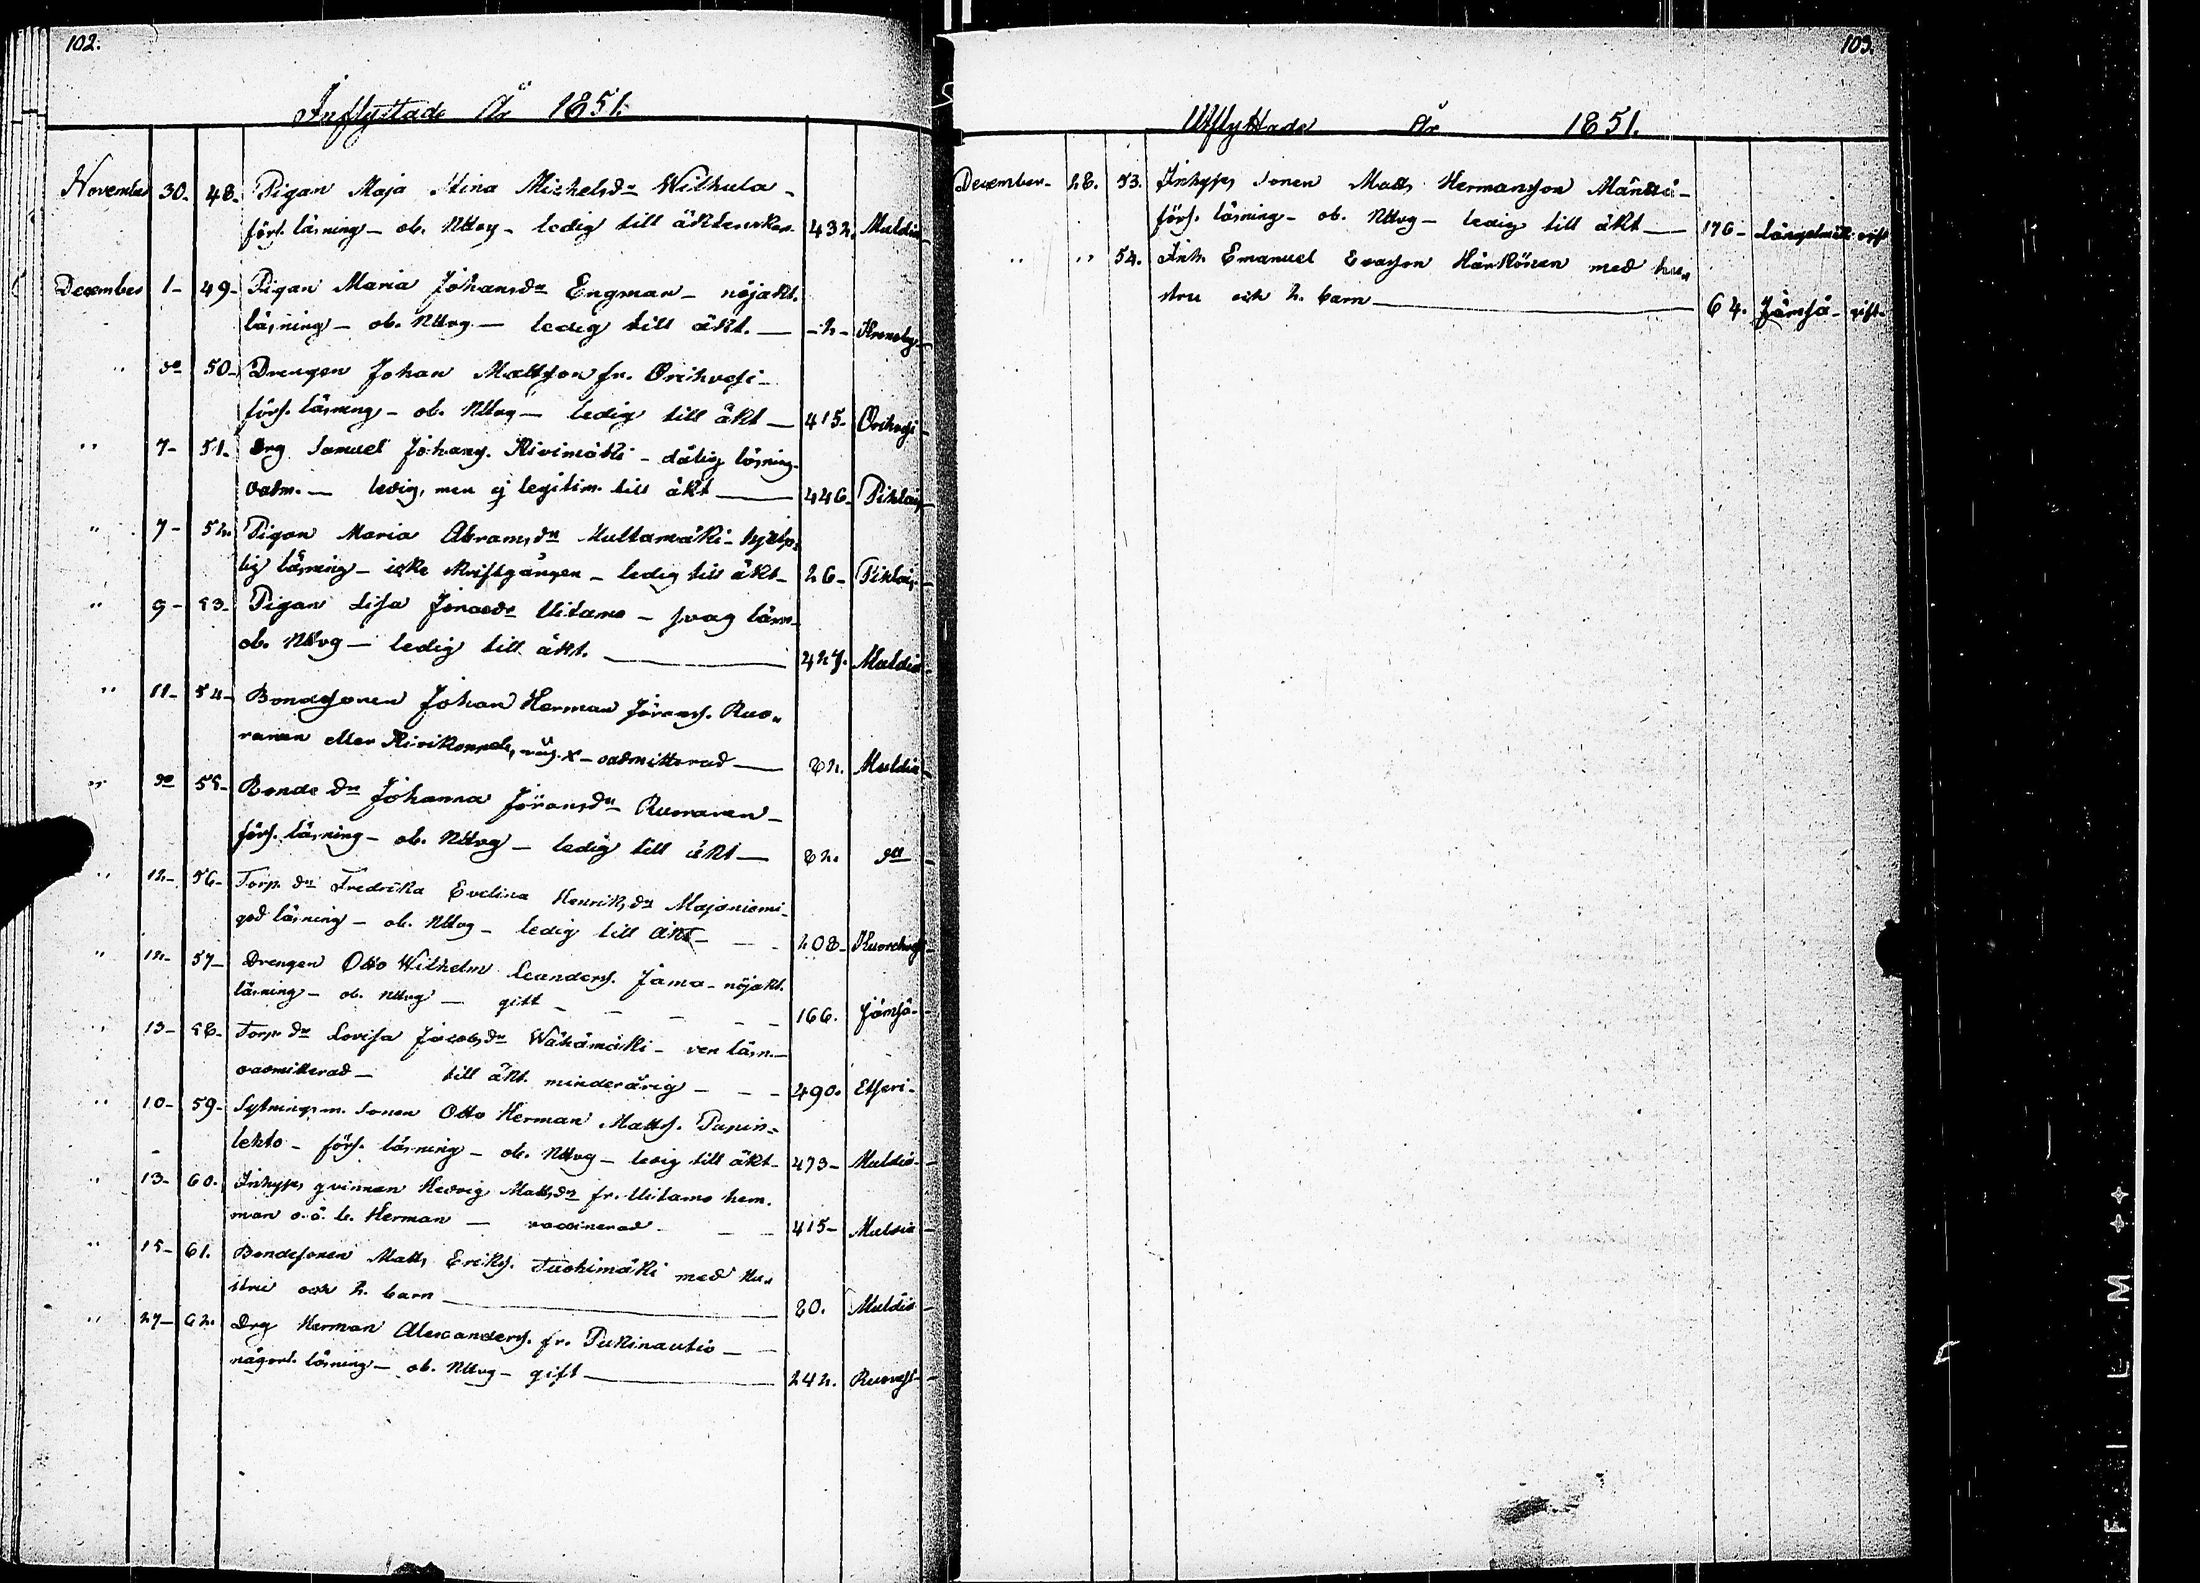 102.
Inflyttade År 1851.
November 30. 48. Pigan Maja Stina Michelsdr Wilhula -
förs. läsning - ob. Nttvg - ledig till äktenskap. 432. Muldia
December 1 - 49 - Pigan Maria Johansdr Engman - nöjakt.
läsning - ob. Nttvg - ledig till äkt. - 2 - Kronoby
" do 50 - Drengen Johan Mattsson fr. Orihvesi -
förs. läsning - ob. Nttvg - ledig till äkt - 415 - Orihvesi
" 7 - 51 - Drg Samuel Johans. Kivimäki - dålig läsning.
oadm. - ledig, men ej legitim. till äkt - 446 - Pihlais
" 7 - 52. Pigan Maria Abramsdr Multamäki - hjelp-
lig läsning - icke skriftgången - ledig till äkt - 26 - Pihlais
" 9 - 53 - Pigan Lisa Jonaedr Uitamo - svag läsn.
ob. Nttvg - ledig till äkt. 427. Muldia
" 11 - 54 - Bondesonen Johan Herman Jörans. Ruo"
ranen eller Kivikoppel, x - oadmitterad - 82. Muldia
" do 55 - Bonde dr Johanna Jöransdr Ruoranen -
förs. läsning - ob. Nttvg - ledig till äkt - 82. do
" 12 - 56 - Torp. dr Fredrika Evelina Henriksdr Majaniemi -
god läsning - ob. Nttvg - ledig till äkt - 208 -
" 12 - 57 - Drengen Otto Wilhelm Leanders. Jama - nöjakt.
läsning - ob. Nttvg - gift - 166. Jämsä -
" 13 - 58 - Torp. dr Lovisa Jacobsdr Wähämäki - ren läsn. -
oadmitterad - till äkt. minderårig - 490. Etseri -
" 10 - 59 - Sytningsm. sonen Otto Herman Matts. Pupin-
lehto - förs. läsning - ob. Nttvg - ledig till äkt - 473 - Muldia -
" 13 - 60. Inhyses qvinnan Hedvig Mattsdr fr. Uitamo hem.
man o. ä. b. Herman - vaccinerad - 415 - Muldia
" 15 - 61. Bondesonen Matts Eriks. Tuohimäki med hu"
stru och 2. barn 80. Muldia
" 27 - 62. Drg Herman Alexanders. fr. Pukinautio -
någorl. läsning - ob. Nttvg - gift 242. Ruovesi -
103.
Utflyttade År 1851.
December - 28. 53. Inhyses sonen Matts Hermansson Mänttä -
förs. läsning - ob. Nttvg - ledig till äkt - 176 - Längelmäki
" " 54. Inh. Emanuel Evasson Härkönen med hu"
stru och 2. barn 64. Jämsä - gift -
FILM